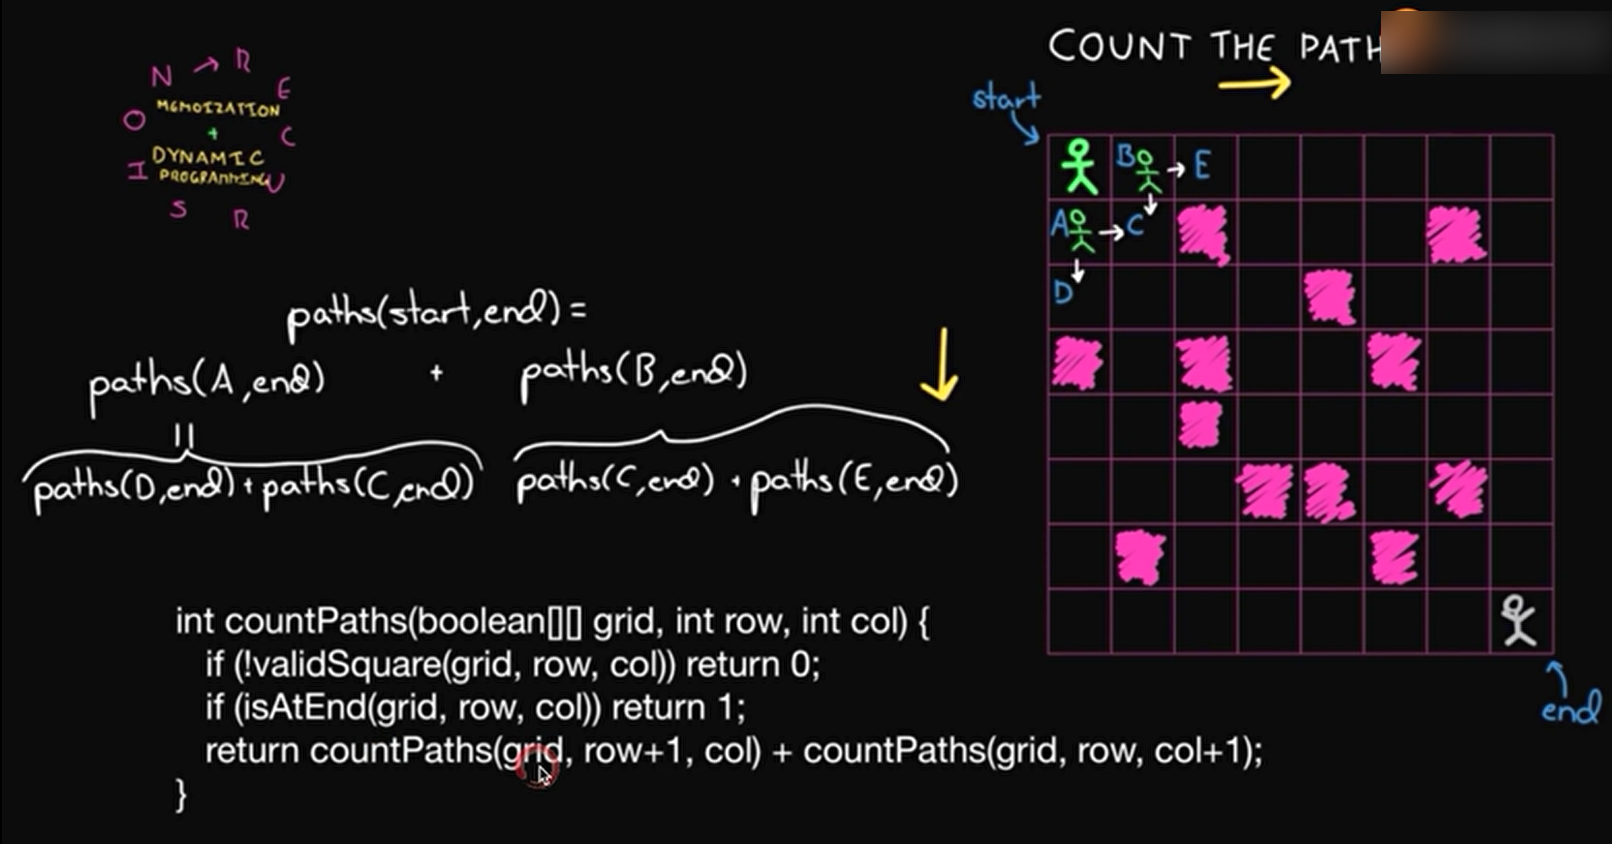 COUNT THE PATH
start
RECURSION
MEMOIZATION
+
DYNAMIC
PROGRAMMING
B → E
A → C
D
paths(start,end) =
paths(A,end) + paths(B,end)
||
paths(D,end) + paths(C,end) paths(C,end) + paths(E,end)
int countPaths(boolean[][] grid, int row, int col) {
if (!validSquare(grid, row, col)) return 0;
if (isAtEnd(grid, row, col)) return 1;
return countPaths(grid, row+1, col) + countPaths(grid, row, col+1);
}
end